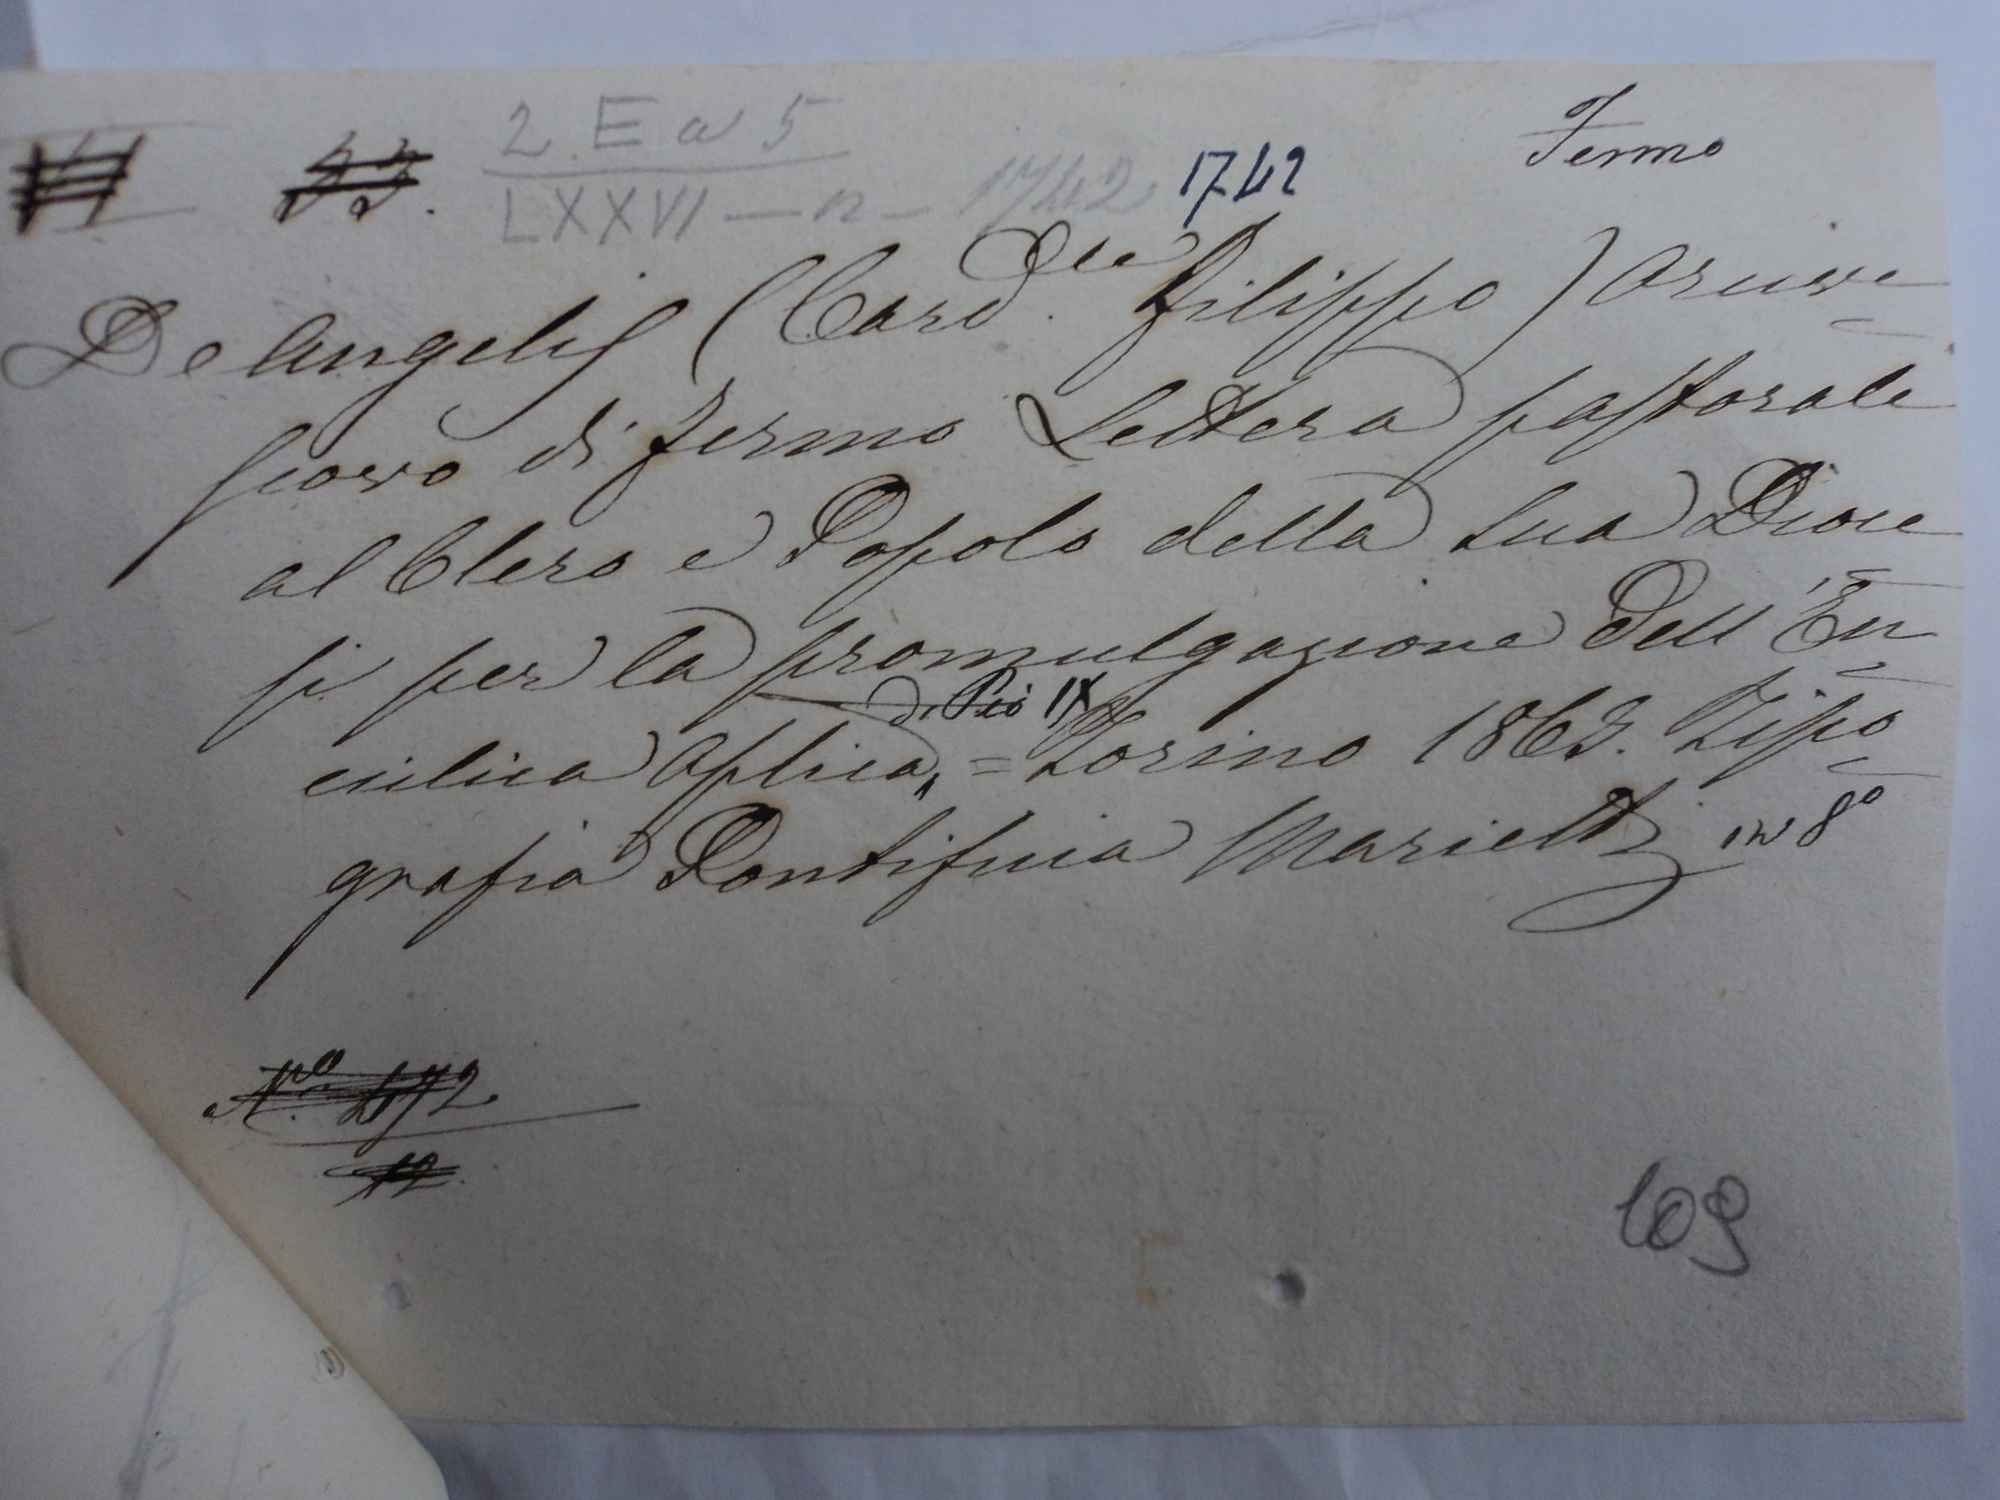 2. E a 5
LXXVI — n — 1742 1742
Fermo
De Angelis (Card.le Filippo) Arcive-
scovo di Fermo Lettera pastorale
al Clero e Popolo della sua Dioce-
si per la promulgazione dell'En-
ciclica Aplica, di Pio IX = Torino 1863. Tipo-
grafia Pontificia Marietti in 8°
N.o 472
12.
109